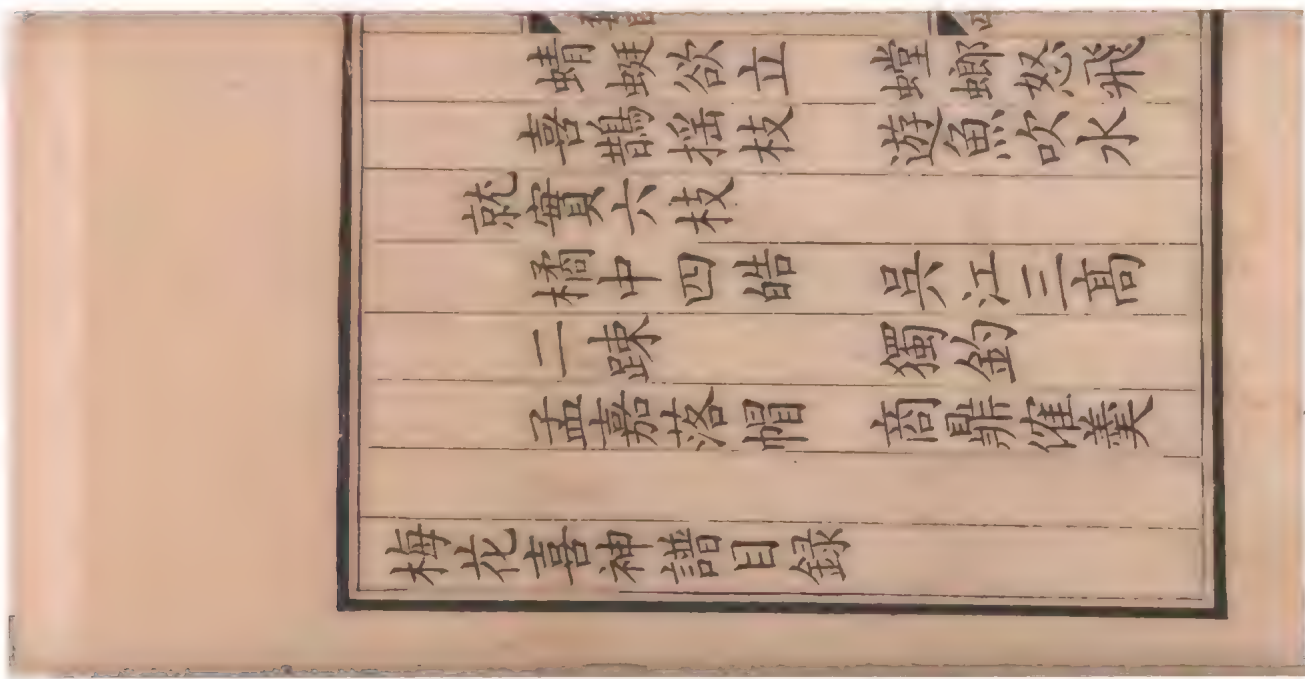 蜻蜓欲立 螳螂怒飛
喜鵲揺枝 遊魚吹水
就實六枝
橘中四皓 吳江三髙
二踈 獨釣
孟嘉落帽 商鼎催羹
梅花喜神譜目録